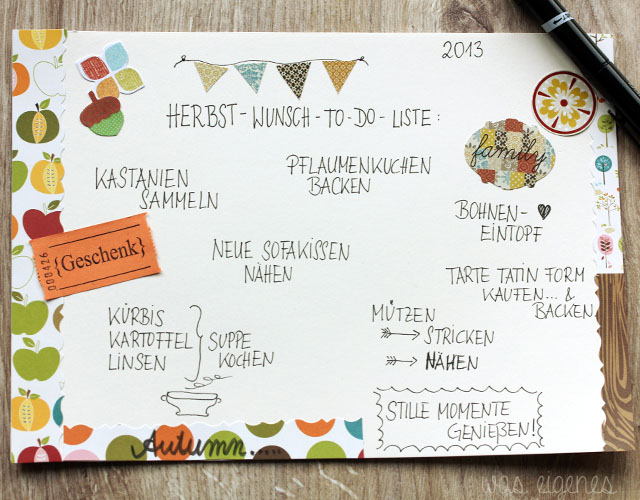 2013
HERBST-WUNSCH-TO-DO-LISTE:
family
KASTANIEN
SAMMELN
PFLAUMENKUCHEN
BACKEN
BOHNEN-
EINTOPF
000426
{Geschenk}
NEUE SOFAKISSEN
NÄHEN
TARTE TATIN FORM
KAUFEN... &
BACKEN
KÜRBIS
KARTOFFEL
LINSEN
SUPPE
KOCHEN
MÜTZEN
STRICKEN
NÄHEN
STILLE MOMENTE
GENIEßEN!
Autumn.....
was eigenes